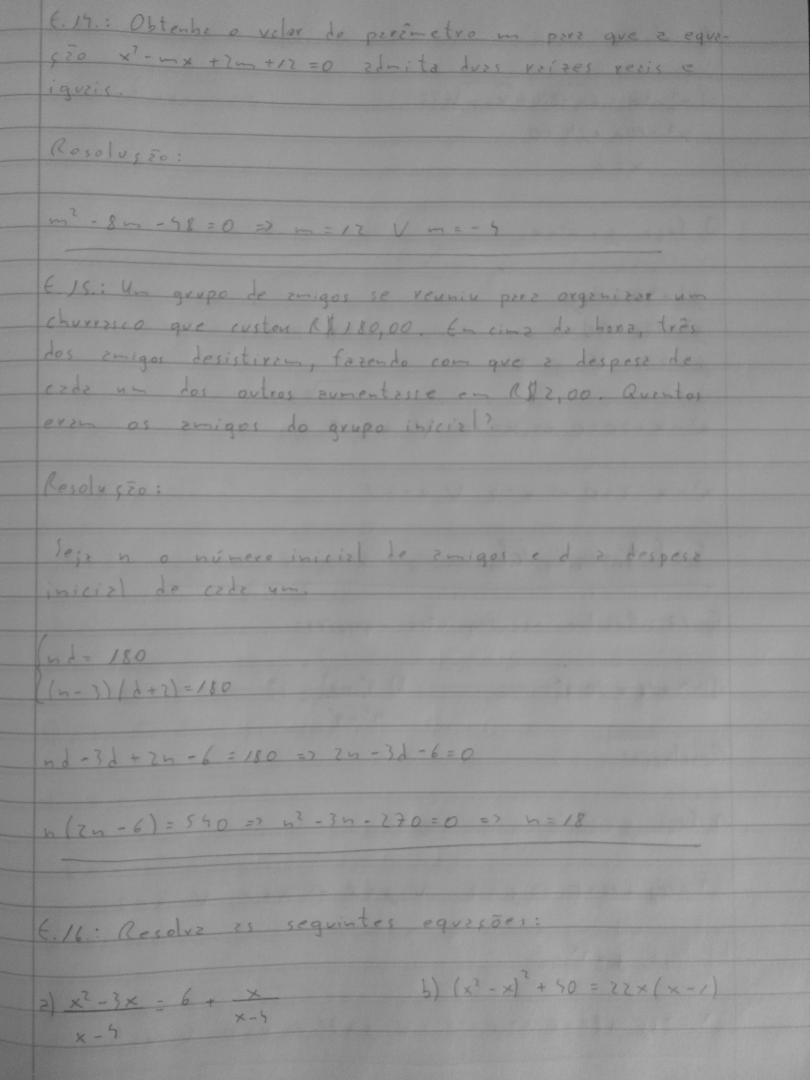 E.14.: Obtenha o valor do parâmetro m para que a equa-
ção x² - mx + 2m + 12 = 0 admita duas raízes reais e
iguais.
Resolução:
m² - 8m - 48 = 0 => m = 12 V m = -4
E.15.: Um grupo de amigos se reuniu para organizar um
churrasco que custou R$180,00. Em cima da hora, três
dos amigos desistiram, fazendo com que a despesa de
cada um dos outros aumentasse em R$2,00. Quantos
eram os amigos do grupo inicial?
Resolução:
Seja n o número inicial de amigos e d a despesa
inicial de cada um.
nd = 180
(n-3)(d+2) = 180
nd - 3d + 2n - 6 = 180 => 2n - 3d - 6 = 0
n(2n - 6) = 540 => n² - 3n - 270 = 0 => n = 18
E.16.: Resolva as seguintes equações:
a) (x² - 3x)/(x - 4) = 6 + x/(x - 4) b) (x² - x)² + 40 = 22x(x - 1)